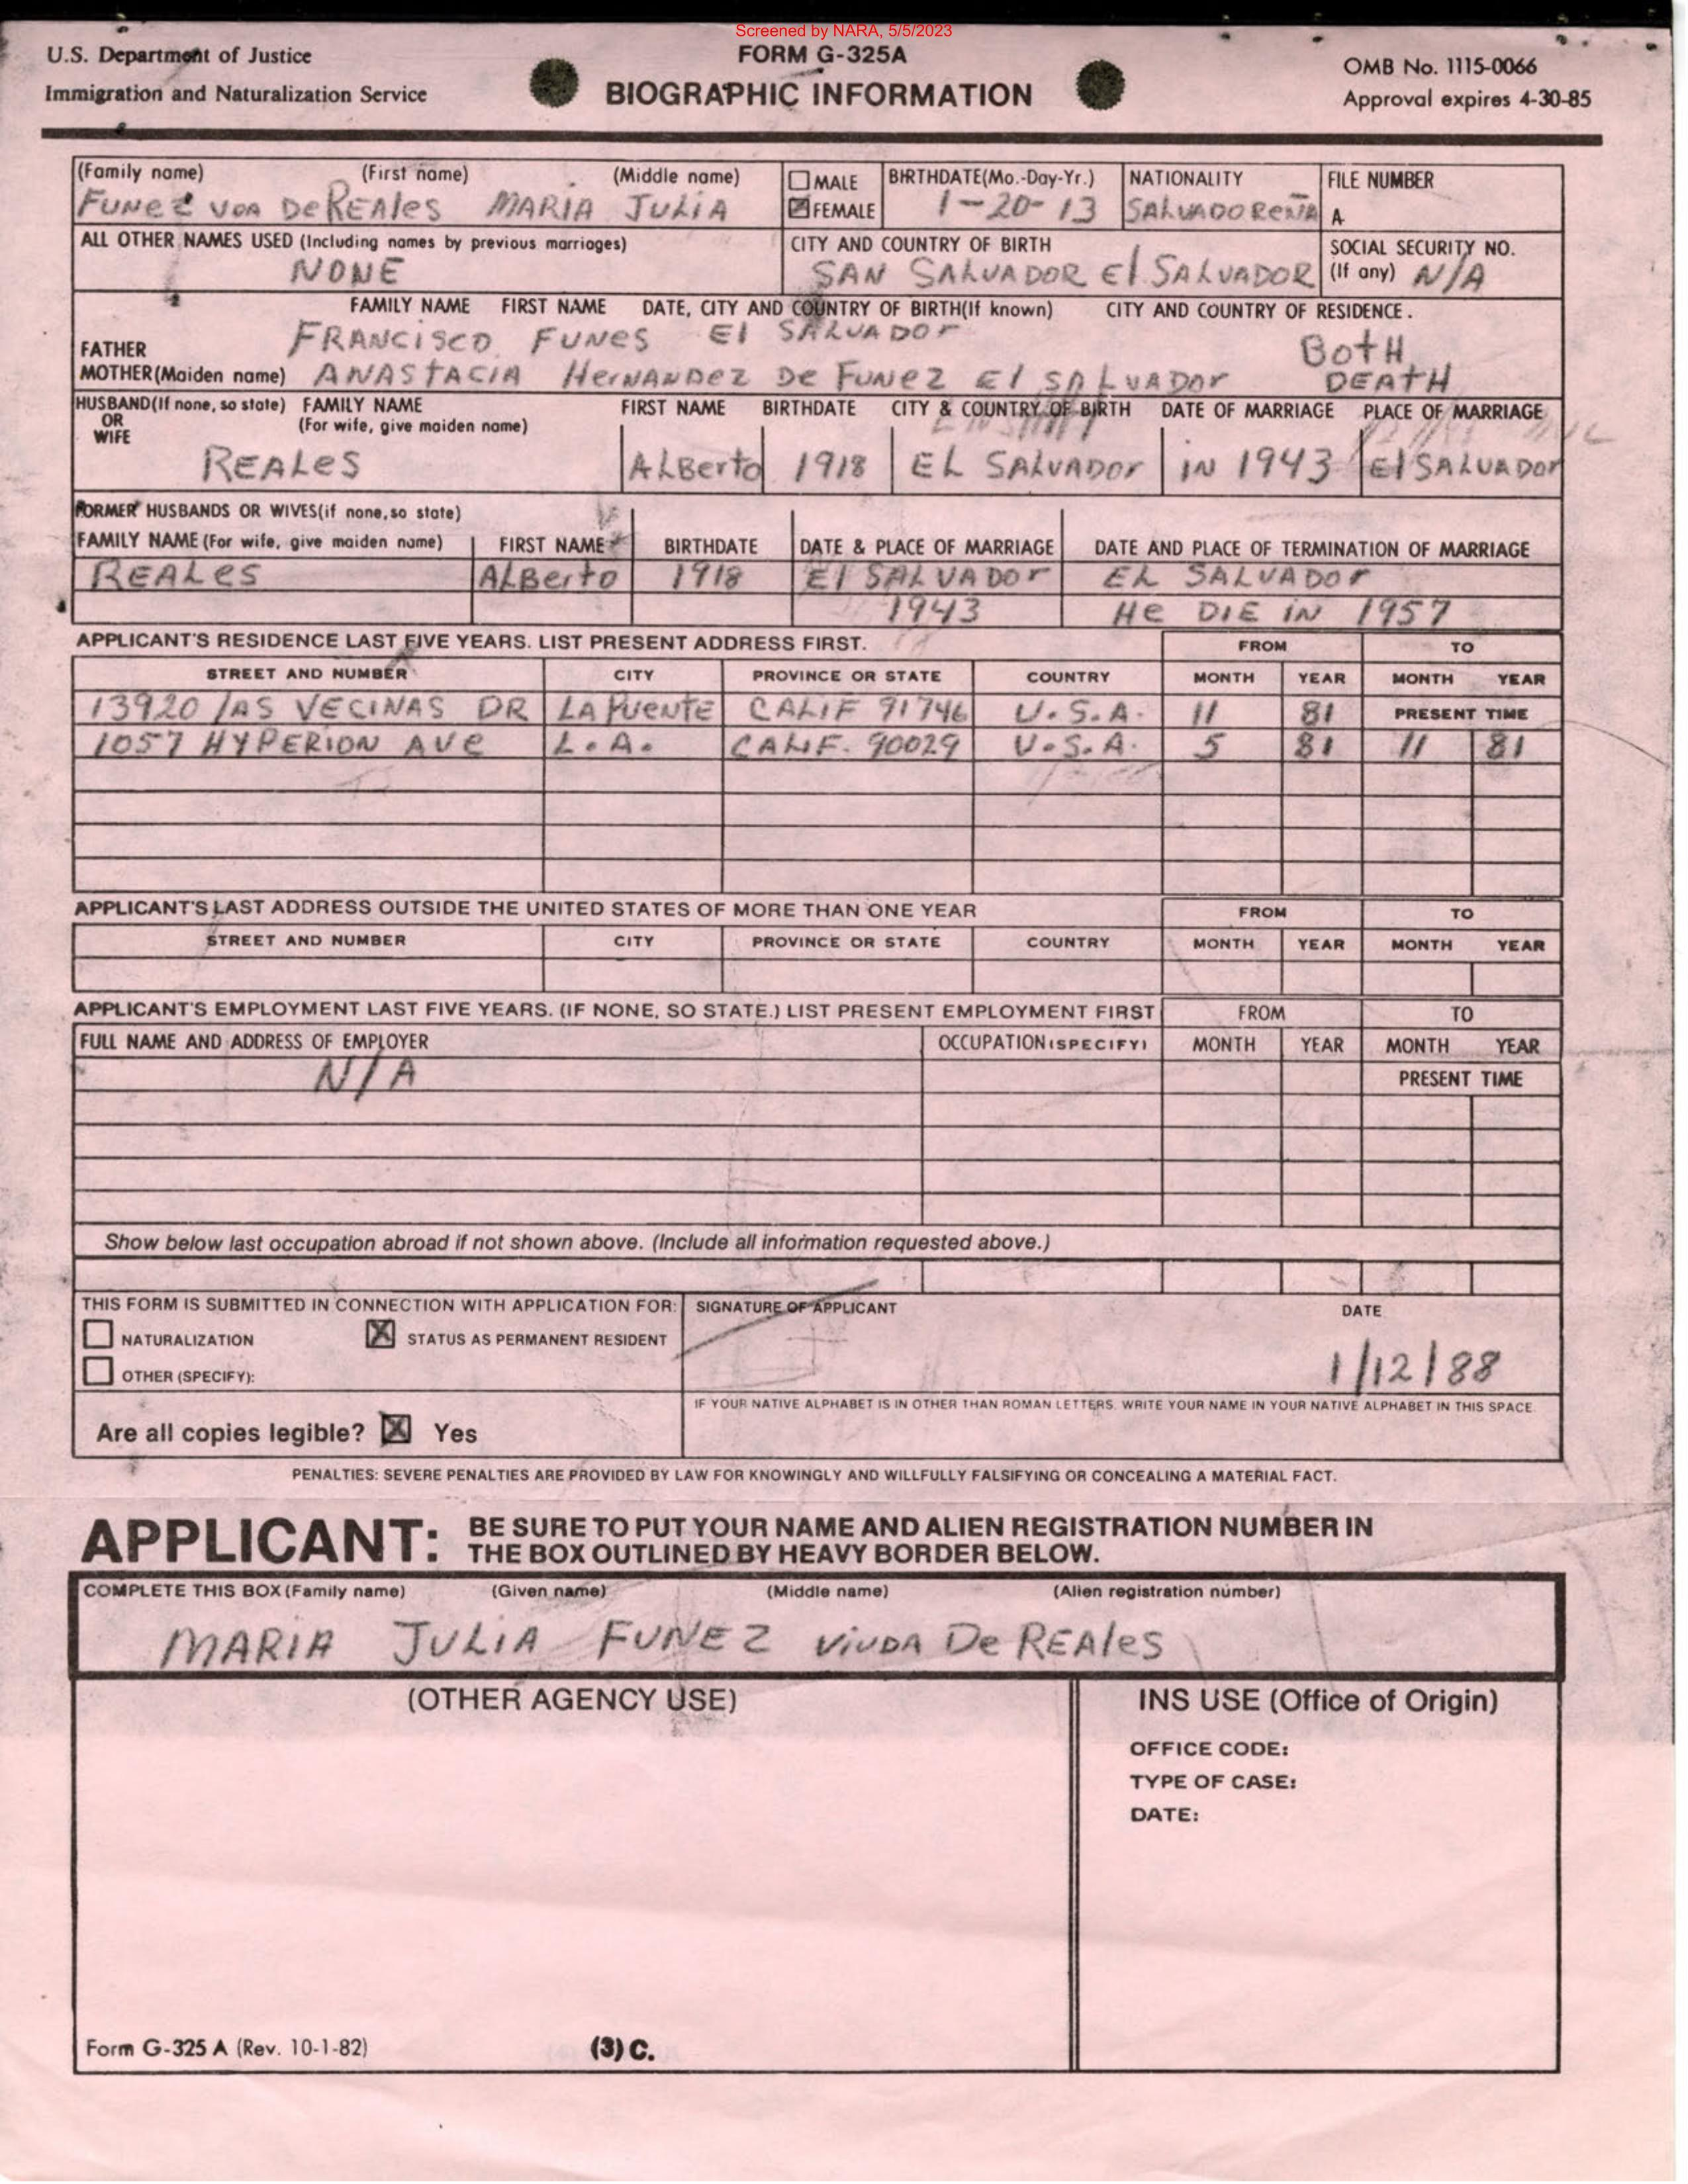 Screened by NARA, 5/5/2023
U.S. Department of Justice
Immigration and Naturalization Service
FORM G-325A
BIOGRAPHIC INFORMATION
OMB No. 1115-0066
Approval expires 4-30-85
(Family name) (First name) (Middle name) MALE BIRTHDATE(Mo.-Day-Yr.) NATIONALITY FILE NUMBER
FUNEZ VDA DeREALes MARIA JULIA FEMALE 1-20-13 SALVADOREÑA A-
ALL OTHER NAMES USED (Including names by previous marriages) CITY AND COUNTRY OF BIRTH SOCIAL SECURITY NO.
NONE SAN SALVADOR El SALVADOR (If any) N/A
FAMILY NAME FIRST NAME DATE, CITY AND COUNTRY OF BIRTH(If known) CITY AND COUNTRY OF RESIDENCE.
FATHER FRANCISCO FUNES El SALVADOr BOTH
MOTHER(Maiden name) ANASTACIA HerNANDEZ De FUNEZ El SALVADOr DEATH
HUSBAND(If none, so state) FAMILY NAME FIRST NAME BIRTHDATE CITY & COUNTRY OF BIRTH DATE OF MARRIAGE PLACE OF MARRIAGE
OR (For wife, give maiden name)
WIFE
REALes ALBerto 1918 EL SALVADOr IN 1943 El SALVADOr
FORMER HUSBANDS OR WIVES(if none,so state)
FAMILY NAME (For wife, give maiden name) FIRST NAME BIRTHDATE DATE & PLACE OF MARRIAGE DATE AND PLACE OF TERMINATION OF MARRIAGE
REALes ALBerto 1918 El SALVADOr EL SALVADOr
1943 He DIE IN 1957
APPLICANT'S RESIDENCE LAST FIVE YEARS. LIST PRESENT ADDRESS FIRST. FROM TO
STREET AND NUMBER CITY PROVINCE OR STATE COUNTRY MONTH YEAR MONTH YEAR
13920 lAS VECINAS DR LA PUENTE CALIF 91746 U.S.A. 11 81 PRESENT TIME
1057 HYPERION AVE L.A. CALIF. 90029 U.S.A. 5 81 11 81
APPLICANT'S LAST ADDRESS OUTSIDE THE UNITED STATES OF MORE THAN ONE YEAR FROM TO
STREET AND NUMBER CITY PROVINCE OR STATE COUNTRY MONTH YEAR MONTH YEAR
APPLICANT'S EMPLOYMENT LAST FIVE YEARS. (IF NONE, SO STATE.) LIST PRESENT EMPLOYMENT FIRST FROM TO
FULL NAME AND ADDRESS OF EMPLOYER OCCUPATION (SPECIFY) MONTH YEAR MONTH YEAR
N/A PRESENT TIME
Show below last occupation abroad if not shown above. (Include all information requested above.)
THIS FORM IS SUBMITTED IN CONNECTION WITH APPLICATION FOR: SIGNATURE OF APPLICANT DATE
NATURALIZATION X STATUS AS PERMANENT RESIDENT
OTHER (SPECIFY): 1/12/88
IF YOUR NATIVE ALPHABET IS IN OTHER THAN ROMAN LETTERS, WRITE YOUR NAME IN YOUR NATIVE ALPHABET IN THIS SPACE.
Are all copies legible? X Yes
PENALTIES: SEVERE PENALTIES ARE PROVIDED BY LAW FOR KNOWINGLY AND WILLFULLY FALSIFYING OR CONCEALING A MATERIAL FACT.
APPLICANT: BE SURE TO PUT YOUR NAME AND ALIEN REGISTRATION NUMBER IN
THE BOX OUTLINED BY HEAVY BORDER BELOW.
COMPLETE THIS BOX (Family name) (Given name) (Middle name) (Alien registration number)
MARIA JULIA FUNEZ VIUDA De REAles
(OTHER AGENCY USE) INS USE (Office of Origin)
OFFICE CODE:
TYPE OF CASE:
DATE:
Form G-325 A (Rev. 10-1-82) (3) C.